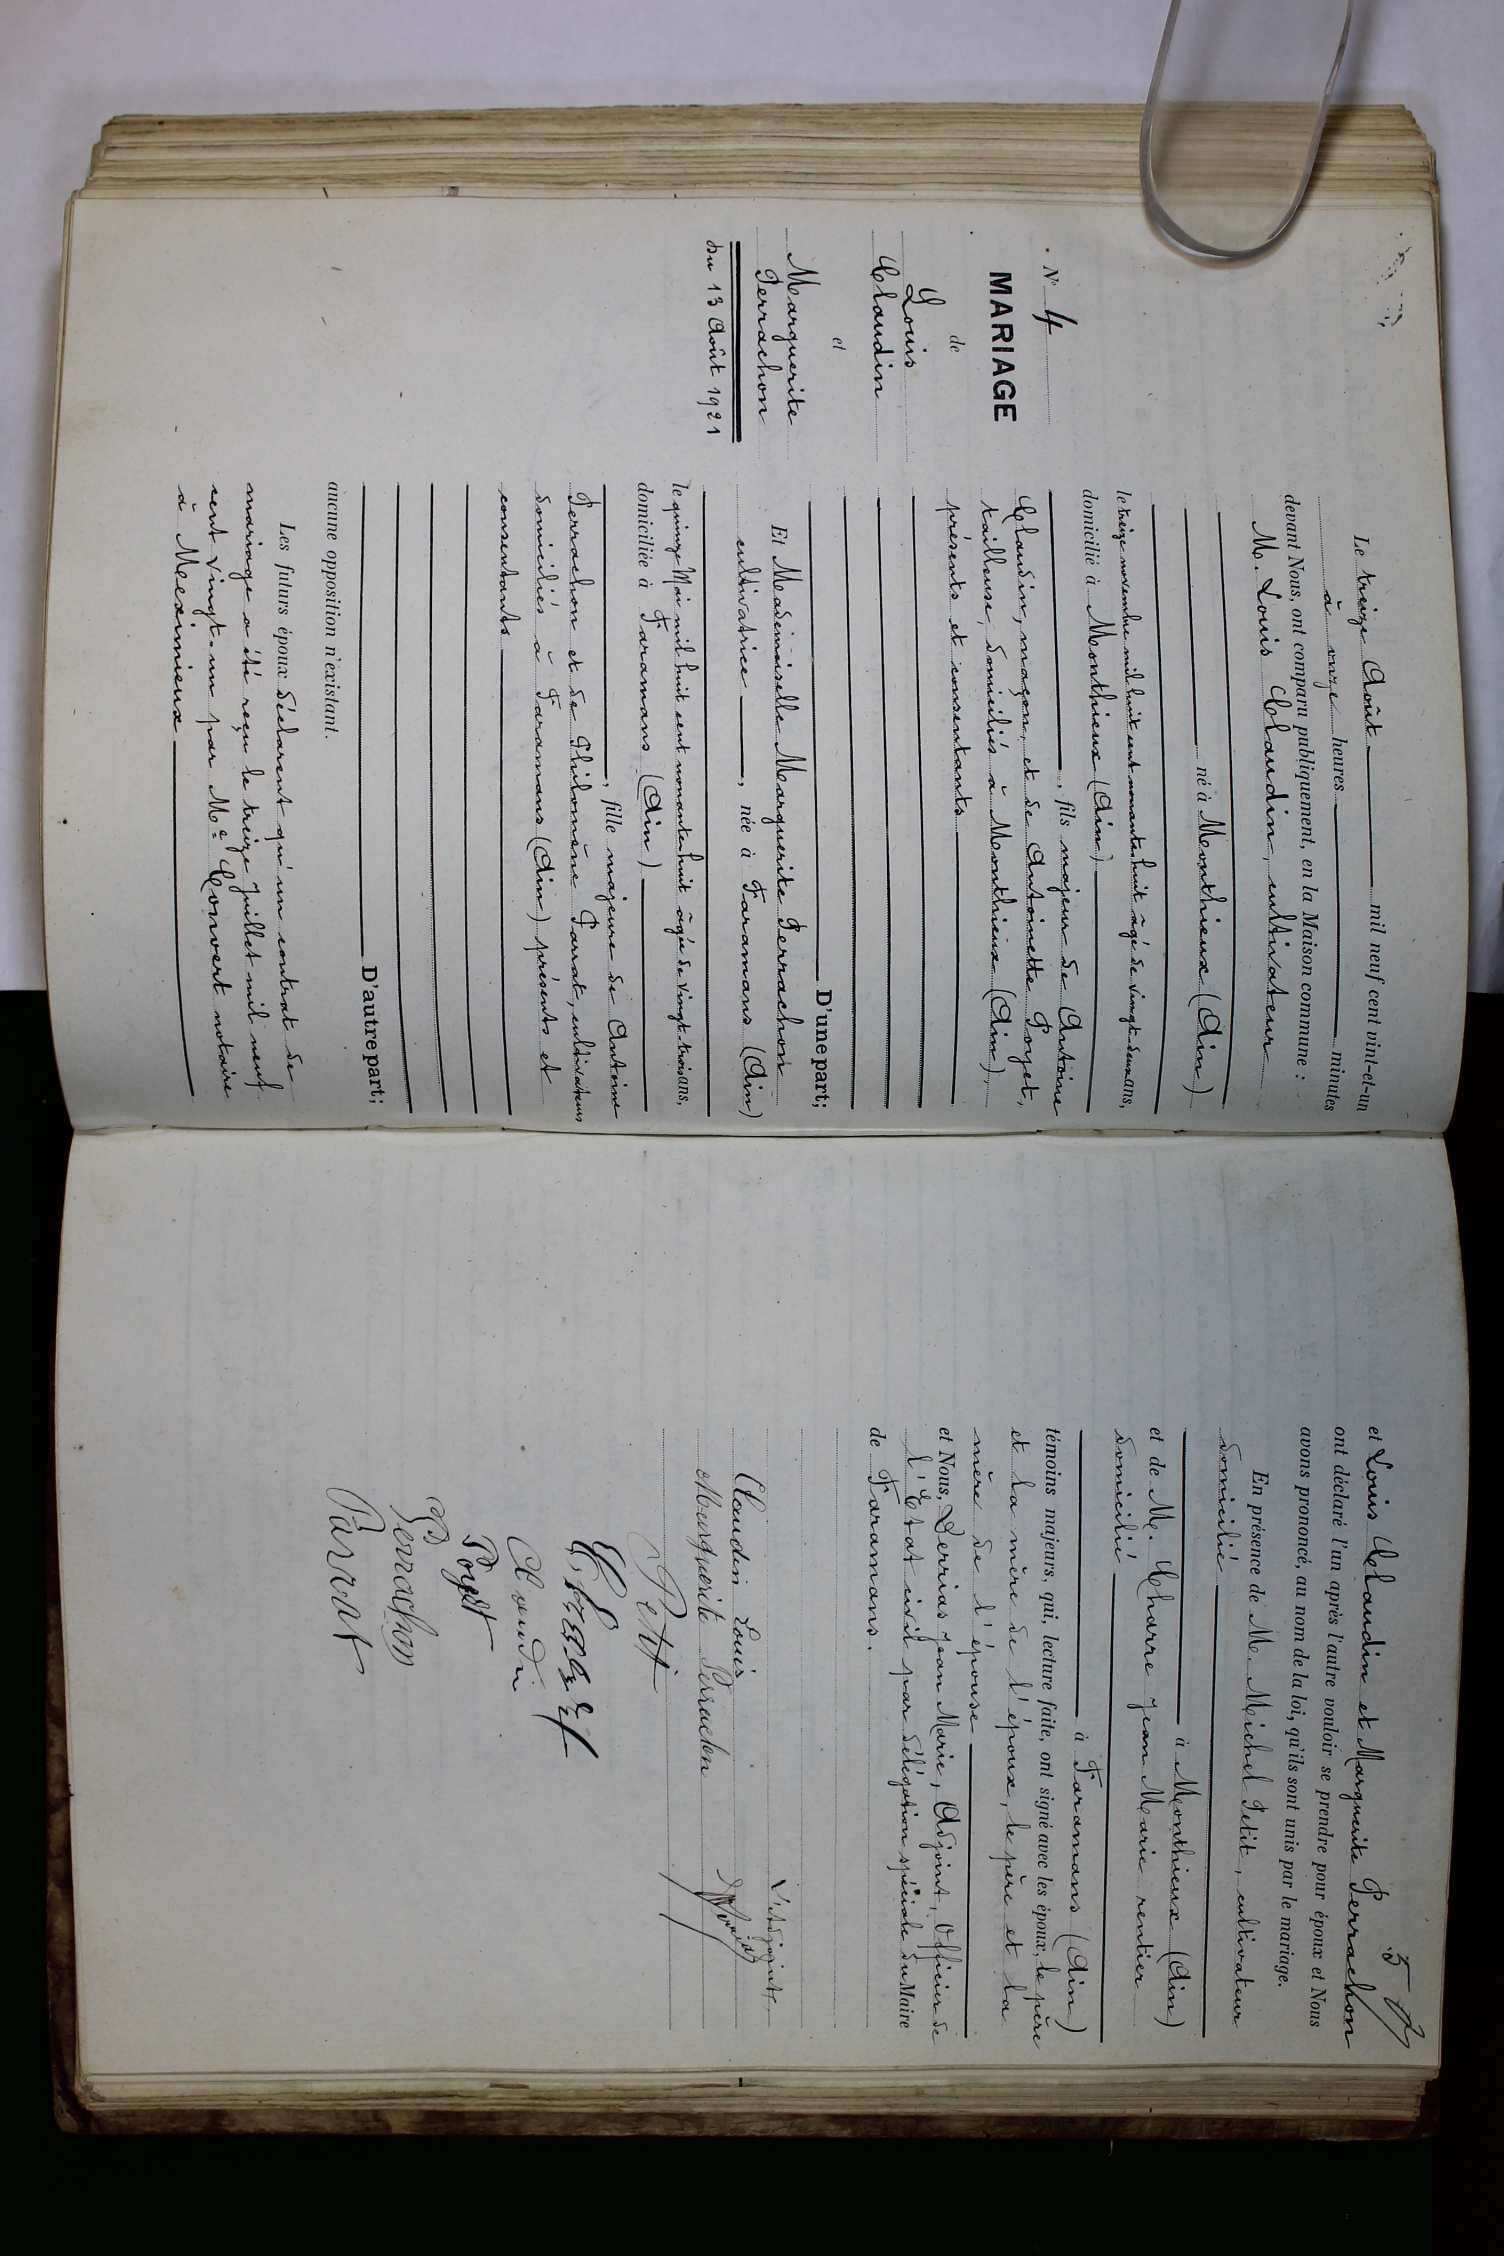 N° 4
MARIAGE
de
Louis
Claudin
et
Marguerite
Perrachon
du 13 Août 1921
Le treize Août mil neuf cent vint-et-un
à onze heures minutes
devant Nous, ont comparu publiquement, en la Maison commune :
M. Louis Claudin, cultivateur
né à Monthieux (Ain)
le treize novembre mil huit cent nonante-huit âgé de vingt-deux ans,
domicilié à Monthieux (Ain)
, fils majeur de Antoine
Claudin, maçon, et de Antoinette Poyet,
tailleuse, domiciliés à Monthieux (Ain),
présents et consentants
D'une part;
Et Mademoiselle Marguerite Perrachon
cultivatrice , née à Faramans (Ain)
le quinze Mai mil huit cent nonante-huit âgée de vingt-trois ans,
domiciliée à Faramans (Ain)
, fille majeure de Antoine
Perrachon et de Philomène Parrat, cultivateurs
domiciliés à Faramans (Ain) présents et
consentants
D'autre part;
aucune opposition n'existant.
Les futurs époux déclarent qu'un contrat de
mariage a été reçu le treize Juillet mil neuf
cent vingt-un par Me Convert notaire
à Meximieux
5
et Louis Claudin et Marguerite Perrachon
ont déclaré l'un après l'autre vouloir se prendre pour époux et Nous
avons prononcé, au nom de la loi, qu'ils sont unis par le mariage.
En présence de M. Michel Petit, cultivateur
domicilié
à Monthieux (Ain)
et de M. Charre Jean Marie rentier
domicilié
à Faramans (Ain)
témoins majeurs, qui, lecture faite, ont signé avec les époux, le père
et la mère de l'époux, le père et la
mère de l'épouse
et Nous, Derrias Jean Marie, Adjoint, Officier de
l'Etat civil par délégation spéciale du Maire
de Faramans.
L'adjoint,
Claudin Louis
Marguerite Perrachon
Petit
Claudin
Poyet
Perrachon
Parrat